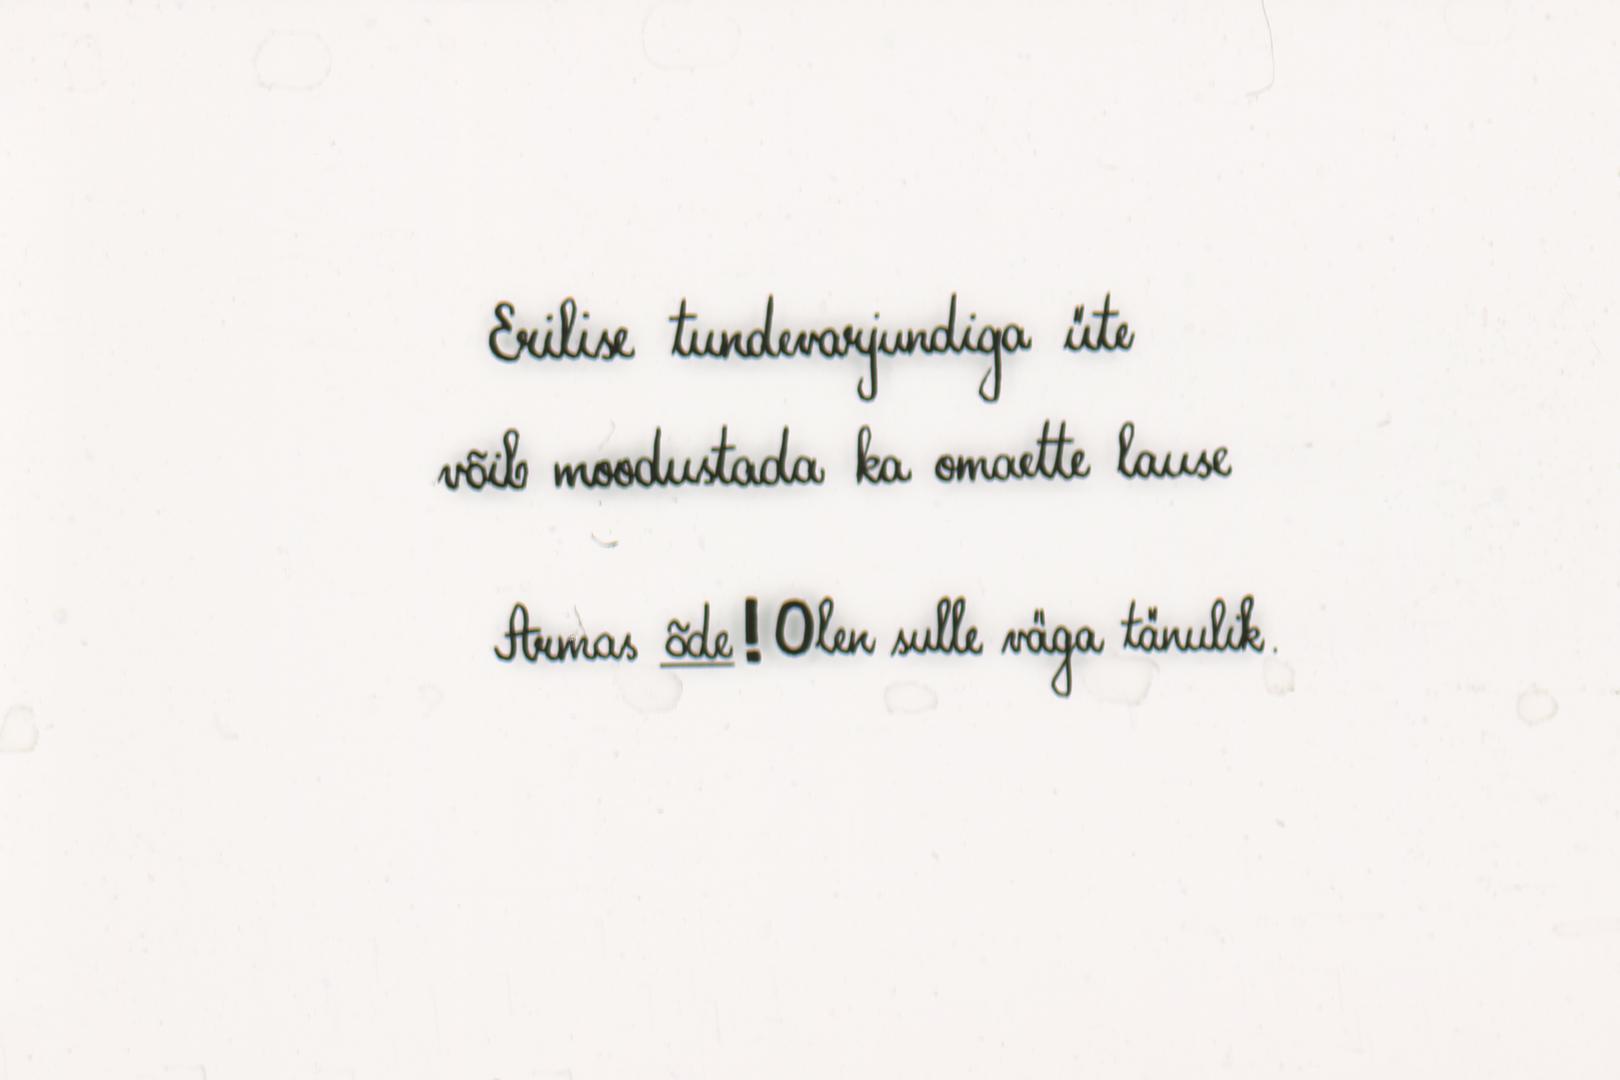 Erilise tundevarjundiga üte
võib moodustada ka omaette lause
Armas õde! Olen sulle väga tänulik.